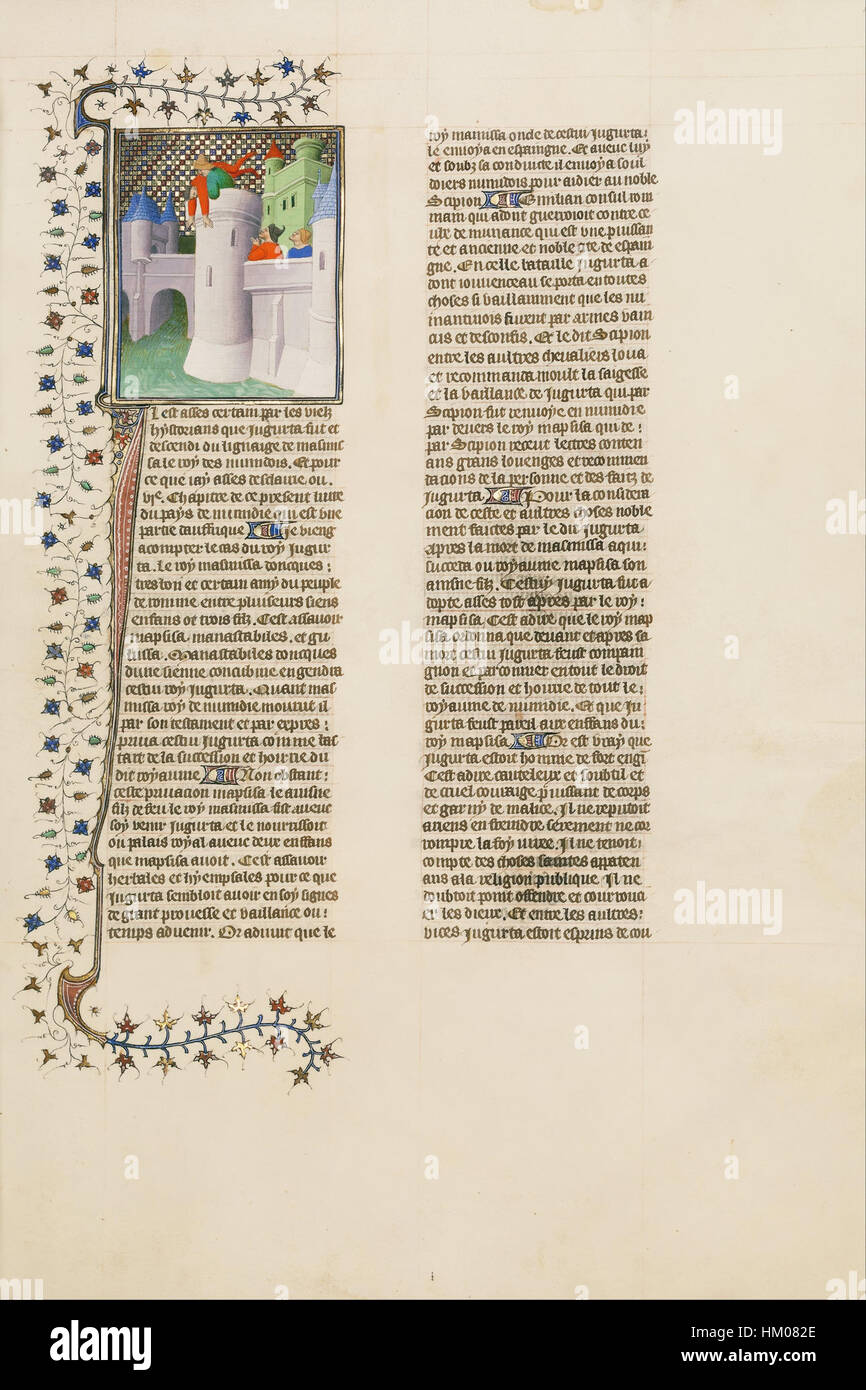 Il est asses certain par les vielz
hystorians que Jugurta fut et
descendi du lignaige de masinis
sa le roy des numidois. Et pour
ce que iay asses desclaire ou
Chapitre de ce present liure
du pays de numidie qui est vne
partie daufrique Je vieng
a compter le cas du roy Jugur
ta. Le roy masinissa doncques
tres bon et certain amy du peuple
de romme entre pluiseurs siens
enfans ot trois filz. Cest assauoir
mapsisa manastabiles. et gu
lussa. Manastabiles doncques
dune sienne concubine engendra
cestui roy Jugurta. Quant mas
inissa roy de numidie mourut il
par son testament et par expres
priua cestui Jugurta comme bas
tart de la succession et hoirie du
dit royaume Non obstant
ceste priuacion mapsisa le aisne
filz de feu le roy masinissa fist auec
soy venir Jugurta et le nourrissoit
ou palais royal auec deux enffans
que mapsisa auoit. Cest assauoir
herbales et hyempsales pour ce que
Jugurta sembloit auoir en soy signes
de grant prouesse et vaillance ou
temps aduenir. Or aduint que le
roy manissa oncle de cestui Jugurta
le enuoya en espaingne. Et auec luy
et soubz sa conduicte il enuoya soul
doiers numidois pour aidier au noble
Scipion Emilian consul rom
main qui adont guerroioit contre ce
ite de numance qui est vne puissan
te et ancienne et noble cite de espai
gne. En celle bataille Jugurta a
dont iouuenceau se porta en toutes
choses si vaillamment que les nu
mantinois furent par armes vain
cus et desconfis. Et le dit Scipion
entre les aultres cheualiers loua
et recommanda moult la saigesse
et la vaillance de Jugurta qui par
Scipion fut renuoye en numidie
par deuers le roy mapsisa qui de
par Scipion receut lectres conten
ans grans louenges et recommen
tacions de la personne et des faitz de
Jugurta Pour la considera
cion de ceste et aultres choses noble
ment faictes par le dit Jugurta
Apres la mort de masinissa a qui
succeda ou royaume mapsisa son
aisne filz. Cestuy Jugurta fut a
dopte asses tost apres par le roy
mapsisa Cest a dire que le roy map
sisa ordonna que deuant et apres sa
mort cestui Jugurta feust compain
gnon et parconnier en tout le droit
de succession et hoirie de tout le
royaume de numidie. Et que Ju
gurta feust pareil aux enffans du
roy mapsisa Or est vray que
Jugurta estoit homme de fort engi
Cest a dire cauteleux et soubtil et
de cruel couraige puissant de corps
et garny de malice. Il ne reputoit
a riens enfreindre serement ne cor
rompre la foy iuree. Il ne tenoit
compte des choses saintes apaten
ans a la religion publique Il ne
doubtoit point offendre et courrouci
er les dieux. Et entre les aultres
vices Jugurta estoit esprins de cou
alamy
alamy stock photo
HM082E
www.alamy.com